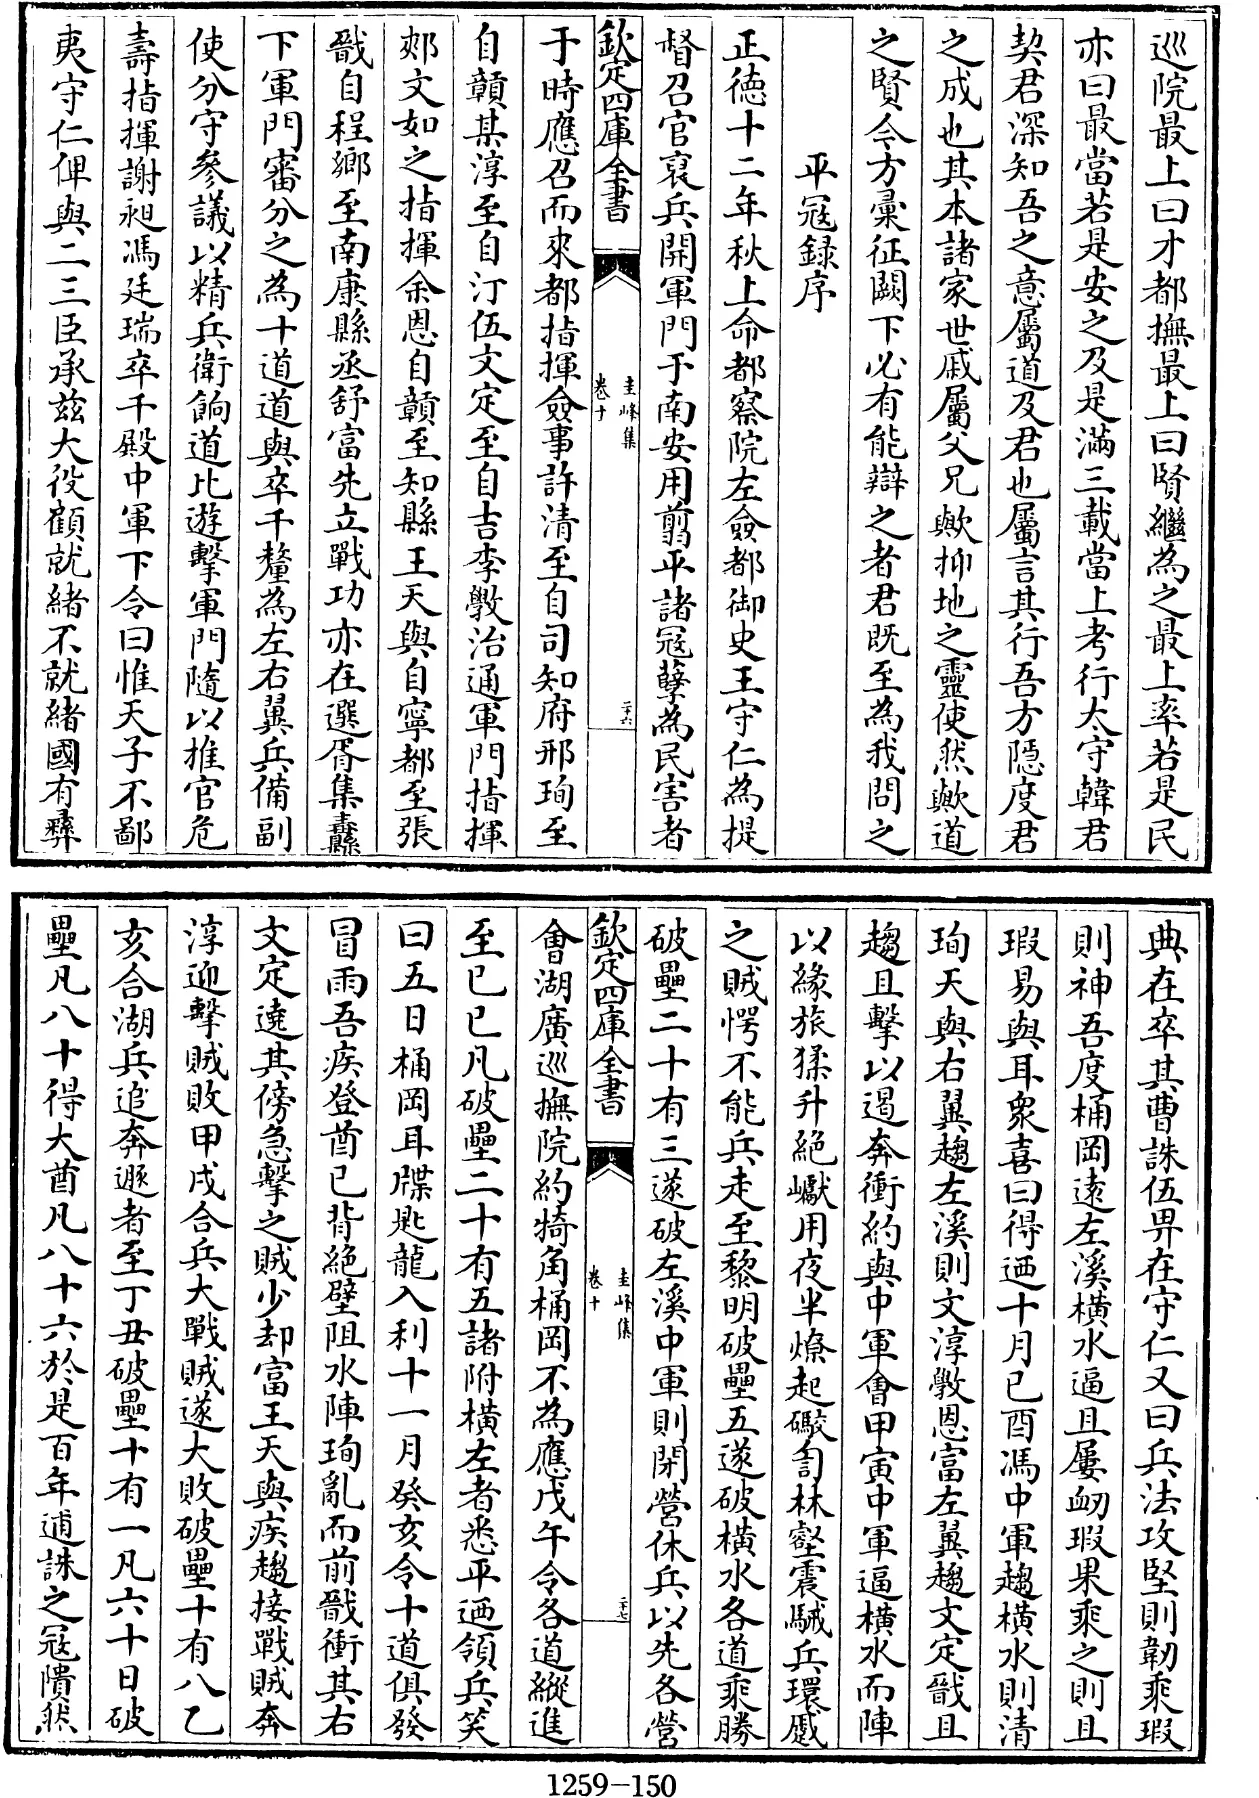 巡院最上曰才都撫最上曰賢繼為之最上率若是民
亦曰最當若是安之及是滿三載當上考行太守韓君
契君深知吾之意屬道及君也屬言其行吾方隱度君
之成也其本諸家世戚屬父兄歟抑地之靈使然歟道
之賢令方彙征闕下必有能辯之者君既至為我問之
平冦録序
正徳十二年秋上命都察院左僉都御史王守仁為提
督召官裒兵開軍門于南安用翦平諸冦孽為民害者
欽定四庫全書
圭峰集
卷十
二十六
于時應召而來都指揮僉事許清至自司知府邢珣至
自贑其淳至自汀伍文定至自吉李斆治通軍門指揮
郟文如之指揮余恩自贑至知縣王天與自寧都至張
戩自程鄉至南康縣丞舒富先立戰功亦在選胥集纛
下軍門審分之為十道道與卒千釐為左右翼兵備副
使分守參議以精兵衛餉道比遊擊軍門隨以推官危
壽指揮謝昶馮廷瑞卒千殿中軍下令曰惟天子不鄙
夷守仁俾與二三臣承兹大役顧就緒不就緒國有彞
典在卒其曹誅伍畀在守仁又曰兵法攻堅則韌乘瑕
則神吾度桶岡遠左溪橫水逼且屢衂瑕果乘之則且
瑕易與耳衆喜曰得迺十月已酉馮中軍趨橫水則清
珣天與右翼趨左溪則文淳斆恩富左翼趨文定戩且
趨且擊以遏奔衝約與中軍會甲寅中軍逼橫水而陣
以緣旅猱升絶巘用夜半燎起礮訇林壑震駴兵環蹙
之賊愕不能兵走至黎明破壘五遂破橫水各道乘勝
破壘二十有三遂破左溪中軍則閉營休兵以先各營
欽定四庫全書
圭峰集
卷十
二十七
會湖廣巡撫院約犄角桶岡不為應戊午令各道縱進
至已巳凡破壘二十有五諸附橫左者悉平迺領兵笑
曰五日桶岡耳牒匙龍入利十一月癸亥令十道俱發
冒雨吾疾登酋已背絶壁阻水陣珣亂而前戩衝其右
文定遶其傍急擊之賊少却富王天與疾趨接戰賊奔
淳迎擊賊敗甲戌合兵大戰賊遂大敗破壘十有八乙
亥合湖兵追奔遯者至丁丑破壘十有一凡六十日破
壘凡八十得大酋凡八十六於是百年逋誅之冦隤然
1259-150